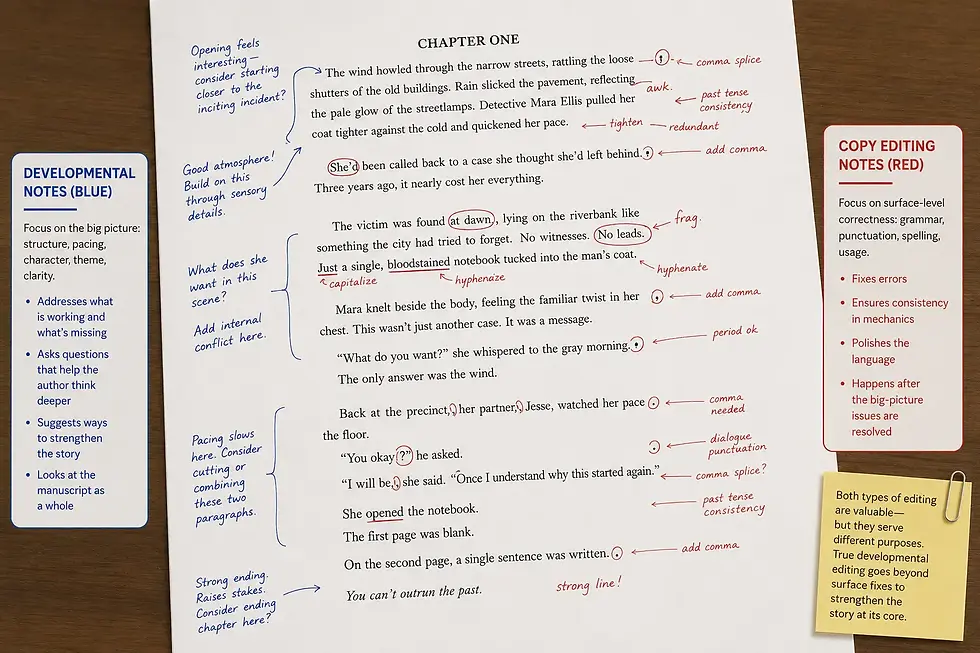 CHAPTER ONE
The wind howled through the narrow streets, rattling the loose
shutters of the old buildings. Rain slicked the pavement, reflecting
the pale glow of the streetlamps. Detective Mara Ellis pulled her
coat tighter against the cold and quickened her pace.
She'd been called back to a case she thought she'd left behind.
Three years ago, it nearly cost her everything.
The victim was found at dawn, lying on the riverbank like
something the city had tried to forget. No witnesses. No leads.
Just a single, bloodstained notebook tucked into the man's coat.
Mara knelt beside the body, feeling the familiar twist in her
chest. This wasn't just another case. It was a message.
“What do you want?” she whispered to the gray morning.
The only answer was the wind.
Back at the precinct, her partner, Jesse, watched her pace
the floor.
“You okay?” he asked.
“I will be, she said. “Once I understand why this started again.”
She opened the notebook.
The first page was blank.
On the second page, a single sentence was written.
You can't outrun the past.
Opening feels
interesting—
consider starting
closer to the
inciting incident?
Good atmosphere!
Build on this
through sensory
details.
What does she
want in this
scene?
Add internal
conflict here.
Pacing slows
here. Consider
cutting or
combining
these two
paragraphs.
Strong ending.
Raises stakes.
Consider ending
chapter here?
comma splice
awk.
past tense
consistency
tighten — redundant
add comma
frag.
capitalize
hyphenize
hyphenate
add comma
period ok
comma
needed
dialogue
punctuation
comma splice?
past tense
consistency
add comma
strong line!
DEVELOPMENTAL
NOTES (BLUE)
Focus on the big picture:
structure, pacing,
character, theme,
clarity.
• Addresses what
is working and
what's missing
• Asks questions
that help the
author think
deeper
• Suggests ways
to strengthen
the story
• Looks at the
manuscript as
a whole
COPY EDITING
NOTES (RED)
Focus on surface-level
correctness: grammar,
punctuation, spelling,
usage.
• Fixes errors
• Ensures consistency
in mechanics
• Polishes the
language
• Happens after
the big-picture
issues are
resolved
Both types of editing
are valuable—
but they serve
different purposes.
True developmental
editing goes beyond
surface fixes to
strengthen the
story at its core.